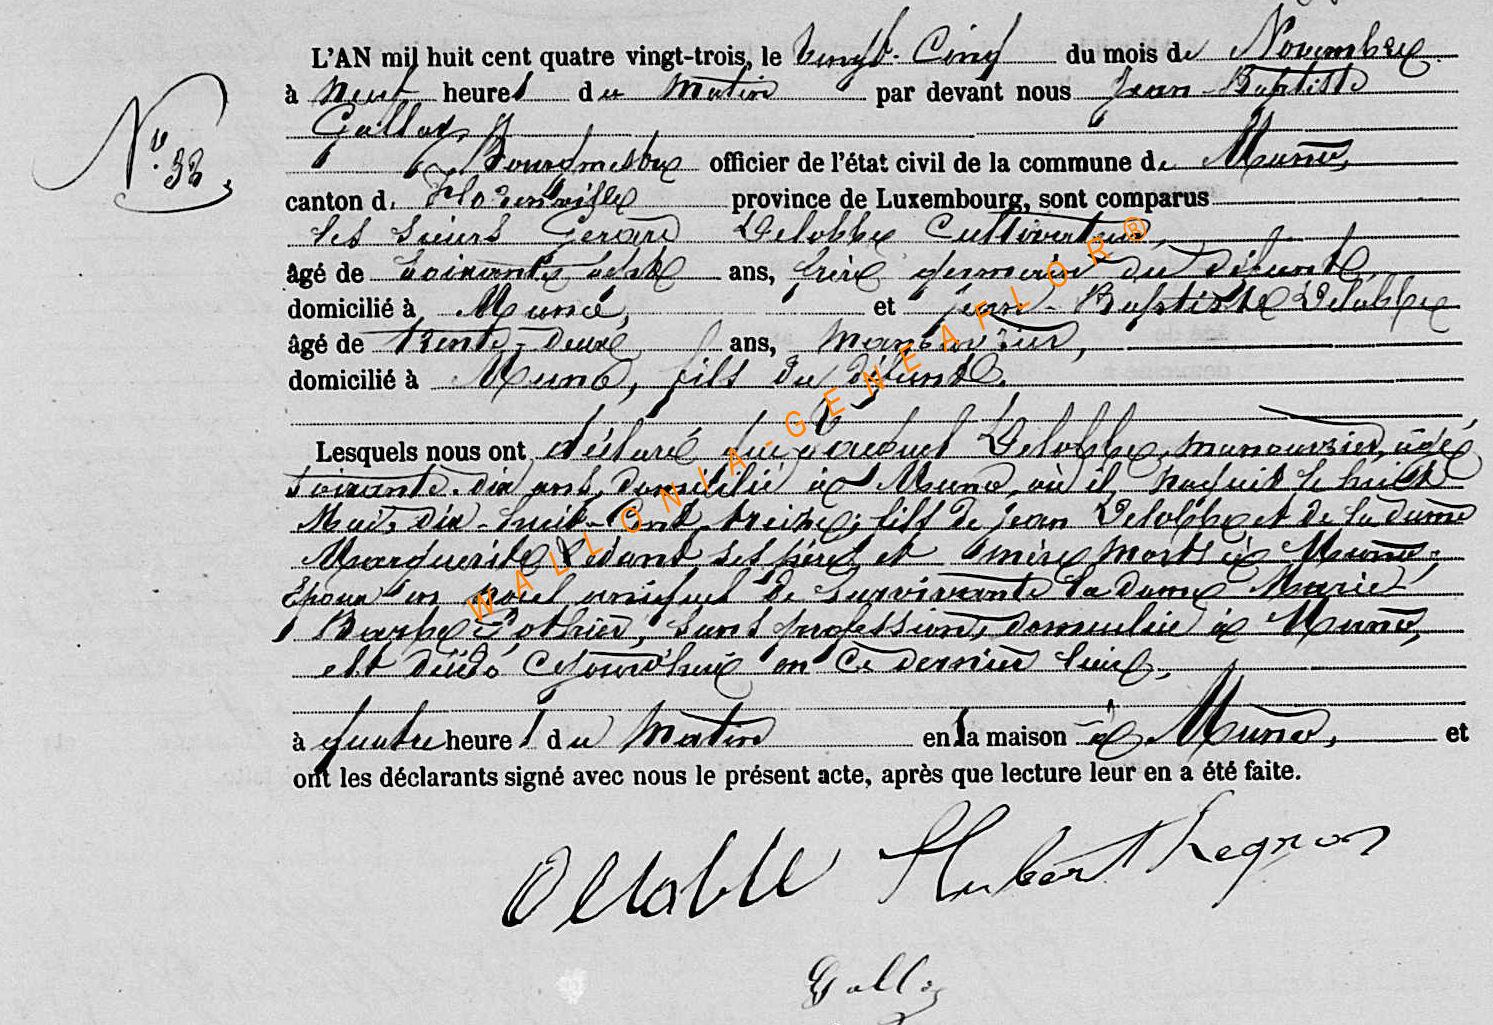 L'AN mil huit cent quatre vingt-trois, le Vingt-Cinq du mois de Novembre
à Neuf heures du Matin par devant nous Jean-Baptiste
Nº. 32
Bourgmestre officier de l'état civil de la commune de Muno,
canton de Florenville province de Luxembourg, sont comparus
les sieurs Gerard Delobbe Cultivateur,
âgé de ans, frère germain du défunt
domicilié à Muno, et Jean-Baptiste Delobbe
âgé de trente-deux ans, manouvrier,
domicilié à Muno, fils du défunt.
Lesquels nous ont déclaré que Jacques Delobbe, manouvrier, âgé
soixante-dix ans, domicilié à Muno, où il naquit le huit
Mai, dix-huit-Cent-treize; fils de Jean Delobbe et de la dame
Marguerite ses père et mère morts à Muno;
Epoux en de survivante la dame Marie
Barbe Pothier, sans profession, domiciliée à Muno,
est décédé Cejourd'hui en ce dernier lieu,
à quatre heures du Matin en la maison à Muno, et
ont les déclarants signé avec nous le présent acte, après que lecture leur en a été faite.
Delobbe Hubert
WALLONIA-GENEAFLOR®